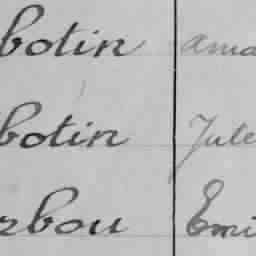 botin ama
botin Jule
rbou Emi